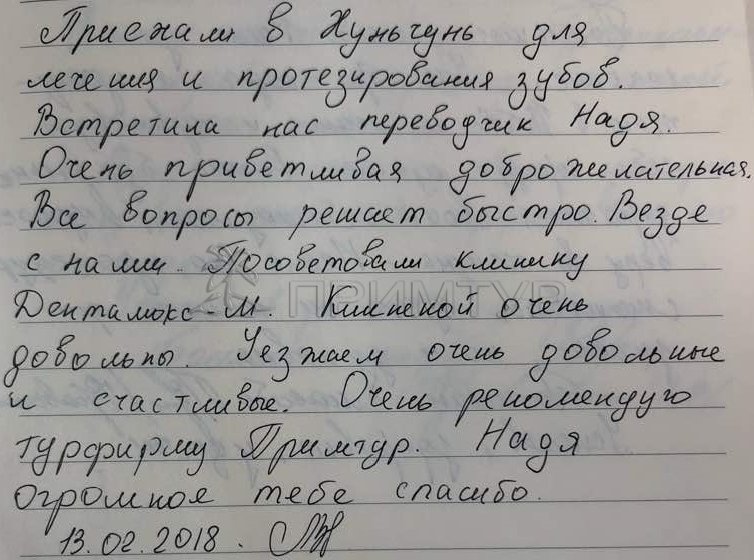 Приехали в Хуньчунь для
лечения и протезирования зубов.
Встретила нас переводчик Надя.
Очень приветливая доброжелательная.
Все вопросы решает быстро. Везде
с нами. Посоветовали клинику
ПРИМТУР
Дентамакс-М. Клиникой очень
довольны. Уезжаем очень довольные
и счастливые. Очень рекомендую
турфирму Примтур. Надя
огромное тебе спасибо.
13.02.2018.